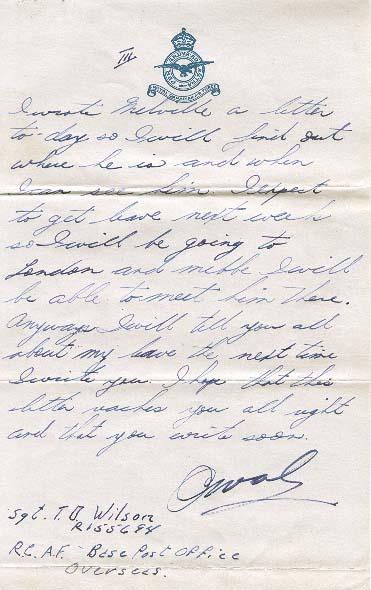 III
I wrote Melville a letter
to-day so I will find out
where he is and when
I can see him. I expect
to get leave next week
so I will be going to
London and mebbe I will
be able to meet him there.
Anyways I will tell you all
about my leave the next time
I write you. I hope that this
letter reaches you all right
and that you write soon.
Orval
Sgt. T.O. Wilson
R155694
R.C.A.F. Base Post Office
Overseas.